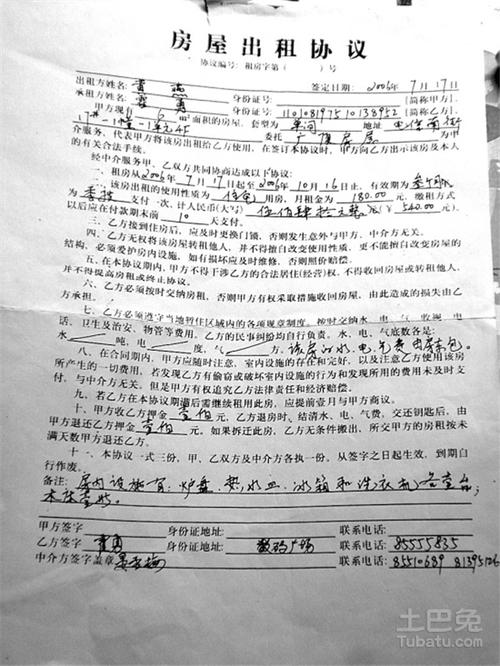 房屋出租协议
协议编号: 租房字第( )号
签定日期: 2006年7月17日
出租方姓名: 身份证号: [简称甲方]
承租方姓名: 勇 身份证号: [简称乙方]
甲方现有 6 面积的房屋,套型为 单间 地址 电信南街
委托 中
介服务,代表甲方将该房出租给乙方使用,在签订本协议时,甲方向乙方出示该房及本人
的有关合法手续。
经中介服务甲、乙双方共同协商达成以下协议:
一、租房从2006年7月17日起至2006年10月16日止,有效期为叁个月
二、该房出租的使用性质为 住宅 用房,月租金为 180.00 元,缴租方式
为 季 支付一次,计人民币(大写) 伍佰肆拾元整 (¥ 540.00 元)
以后应在付款期末前 10 天交付。
三、乙方接到住房后,应及时更换门锁,否则发生意外与甲方、中介方无关。
四、乙方无权将该房屋转租他人,并不得擅自改变使用性质,更不能擅自改变房屋的
结构,必须爱护房内设施,如有损坏应及时维修,否则照价赔偿。
五、在本协议期内,甲方不得干涉乙方的合法居住(经营)权,不得收回房屋或转租他人,
并不得提高房租或终止协议。
六、乙方必须按时交纳房租,否则甲方有权采取措施收回房屋,由此造成的损失由乙
方承担。
七、乙方必须遵守当地暂住区域内的各项规章制度,按时交纳水、电、气、收视、电
话、卫生及治安、物管等费用。乙方的民事纠纷均自行负责。水、电、气底数各是:
水 吨,电 度,气 方。该房的水电气费由房东包。
八、在合同期内,甲方应随时注意,室内设施的存在和完好,以及注意乙方使用该房
所产生的一切费用,若发现乙方有偷窃或破坏室内设施的行为和发现所用的费用未及时支
付,与中介方无关。但是甲方有权追究乙方法律责任和经济赔偿。
九、若乙方在本协议期满后需继续租用此房,应提前壹月与甲方商议。
十、甲方收乙方押金 壹佰 元,乙方退房时、结清水、电、气费,交还钥匙后,由
甲方退还乙方押金 壹佰 元。如果拆迁此房,乙方无条件搬出,所交甲方的房租按未
满天数甲方退还乙方。
十一、本协议一式三份,甲、乙双方及中介方各执一份。从签字之日起生效,到期自
行作废。
备注: 房内设施有:炉盘、热水皿、冰箱和洗衣机各壹台;
木床壹
甲方签字 身份证地址: 联系电话:
乙方签字 勇 身份证地址: 数码广场 联系电话: 85555835
中介方签字盖章 联系电话: 85510689 81395126
土巴兔
Tubatu.com